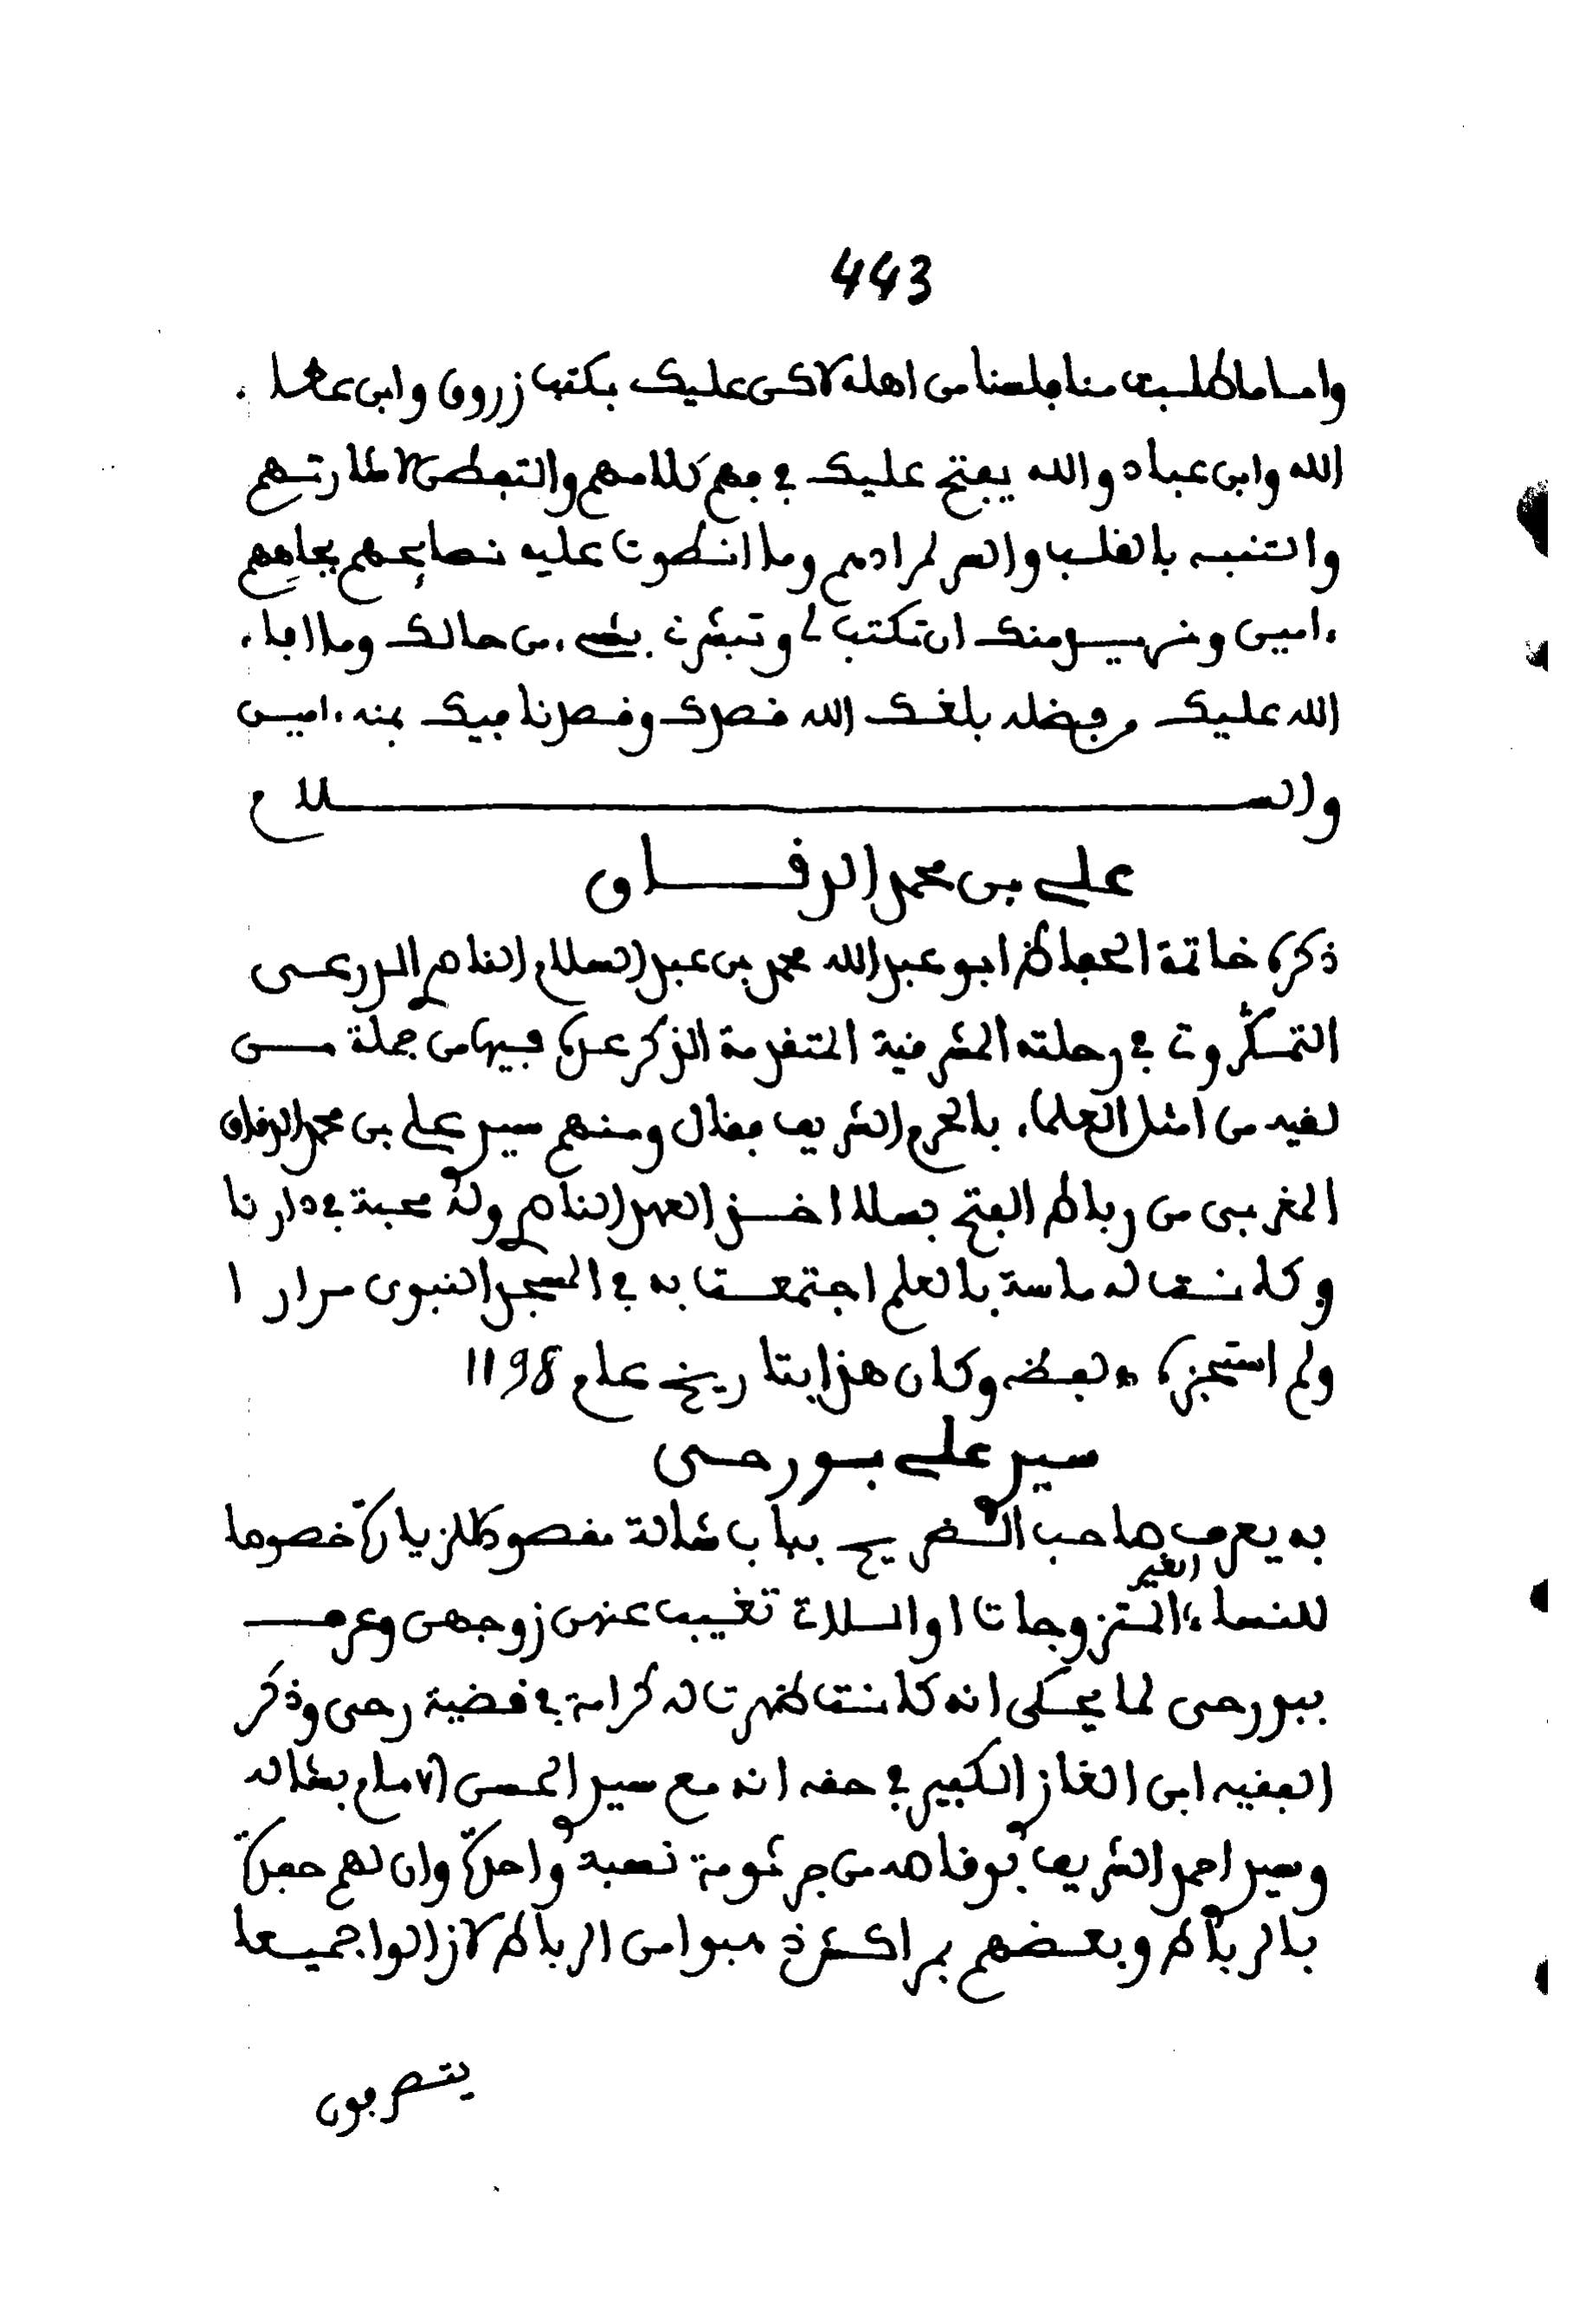 443
واما ما طلبت منا فلسنا من اهله لاكن عليك بكتب زروق وابن عطاء
الله وابن عباد والله يفتح عليك في فهم كلامهم والتفطن لاشارتهم
والتنبه بالقلب والسر لمرادهم وما انطوت عليه نصايحهم بجاههم
ءامين ونريد منك ان تكتب لي وتبشرني بشيء من حالك وما افاء
الله عليك من فضله بلغك الله قصدك وقصدنا فيك بمنه ءامين
والســـلام
علي بن محمد الزقاق
ذكره خاتمة الحفاظ ابو عبد الله محمد بن عبد السلام الناصري الدرعي
التمكروتي في رحلته المشرقية المتقدمة الذكر عده فيها من جملة من
لقيه من امثل العلماء بالحرم الشريف فقال ومنهم سيدي علي بن محمد الزقاق
المغربي من رباط الفتح بسلا اخذ العهد الناصري وله محبة في دارنا
وكانت له ماسة بالعلم اجتمعت به في المسجد النبوي مرارا
ولم استجزه ه لفظه وكان هذا بتاريخ عام 1198
سيدي علي بورحى
به يعرف صاحب الضريح بباب شالة مقصود للزيارة خصوصا
للنساء الغير المتزوجات او اللات تغيب عنهن زوجهن وعرف
ببورحى لما يحكى انه كانت ظهرت له كرامة في قضية رحى وذكر
الفقيه ابن الغازي الكبير في حقه انه مع سيدي الحسن الامام بشاله
وسيدي احمد الشريف بوقاصه من جرثومة نسبة واحدة وان لهم حفدة
بالرباط وبعضهم بمراكش ذهبوا من الرباط لازالوا جميعا
يتصرفون